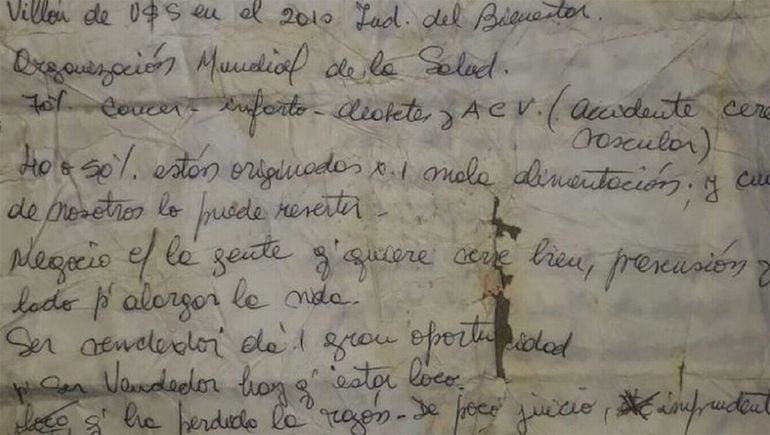 Villón de U$S en el 2010 Ind. del Bienestar.
Organización Mundial de la Salud.
70% cancer - infarto - diabetes y ACV. (accidente cere
vascular)
40 o 50% están originados x 1 mala alimentación; y cu
de nosotros lo puede revertir -
Negocio c/ la gente q' quiere
bien, prevensión y
lado p' alargar la vida.
Ser vendedor dá 1 gran oportunidad
p' ser Vendedor hay q' estar loco.
loco q' ha perdido la razón - de poco juicio, imprudent